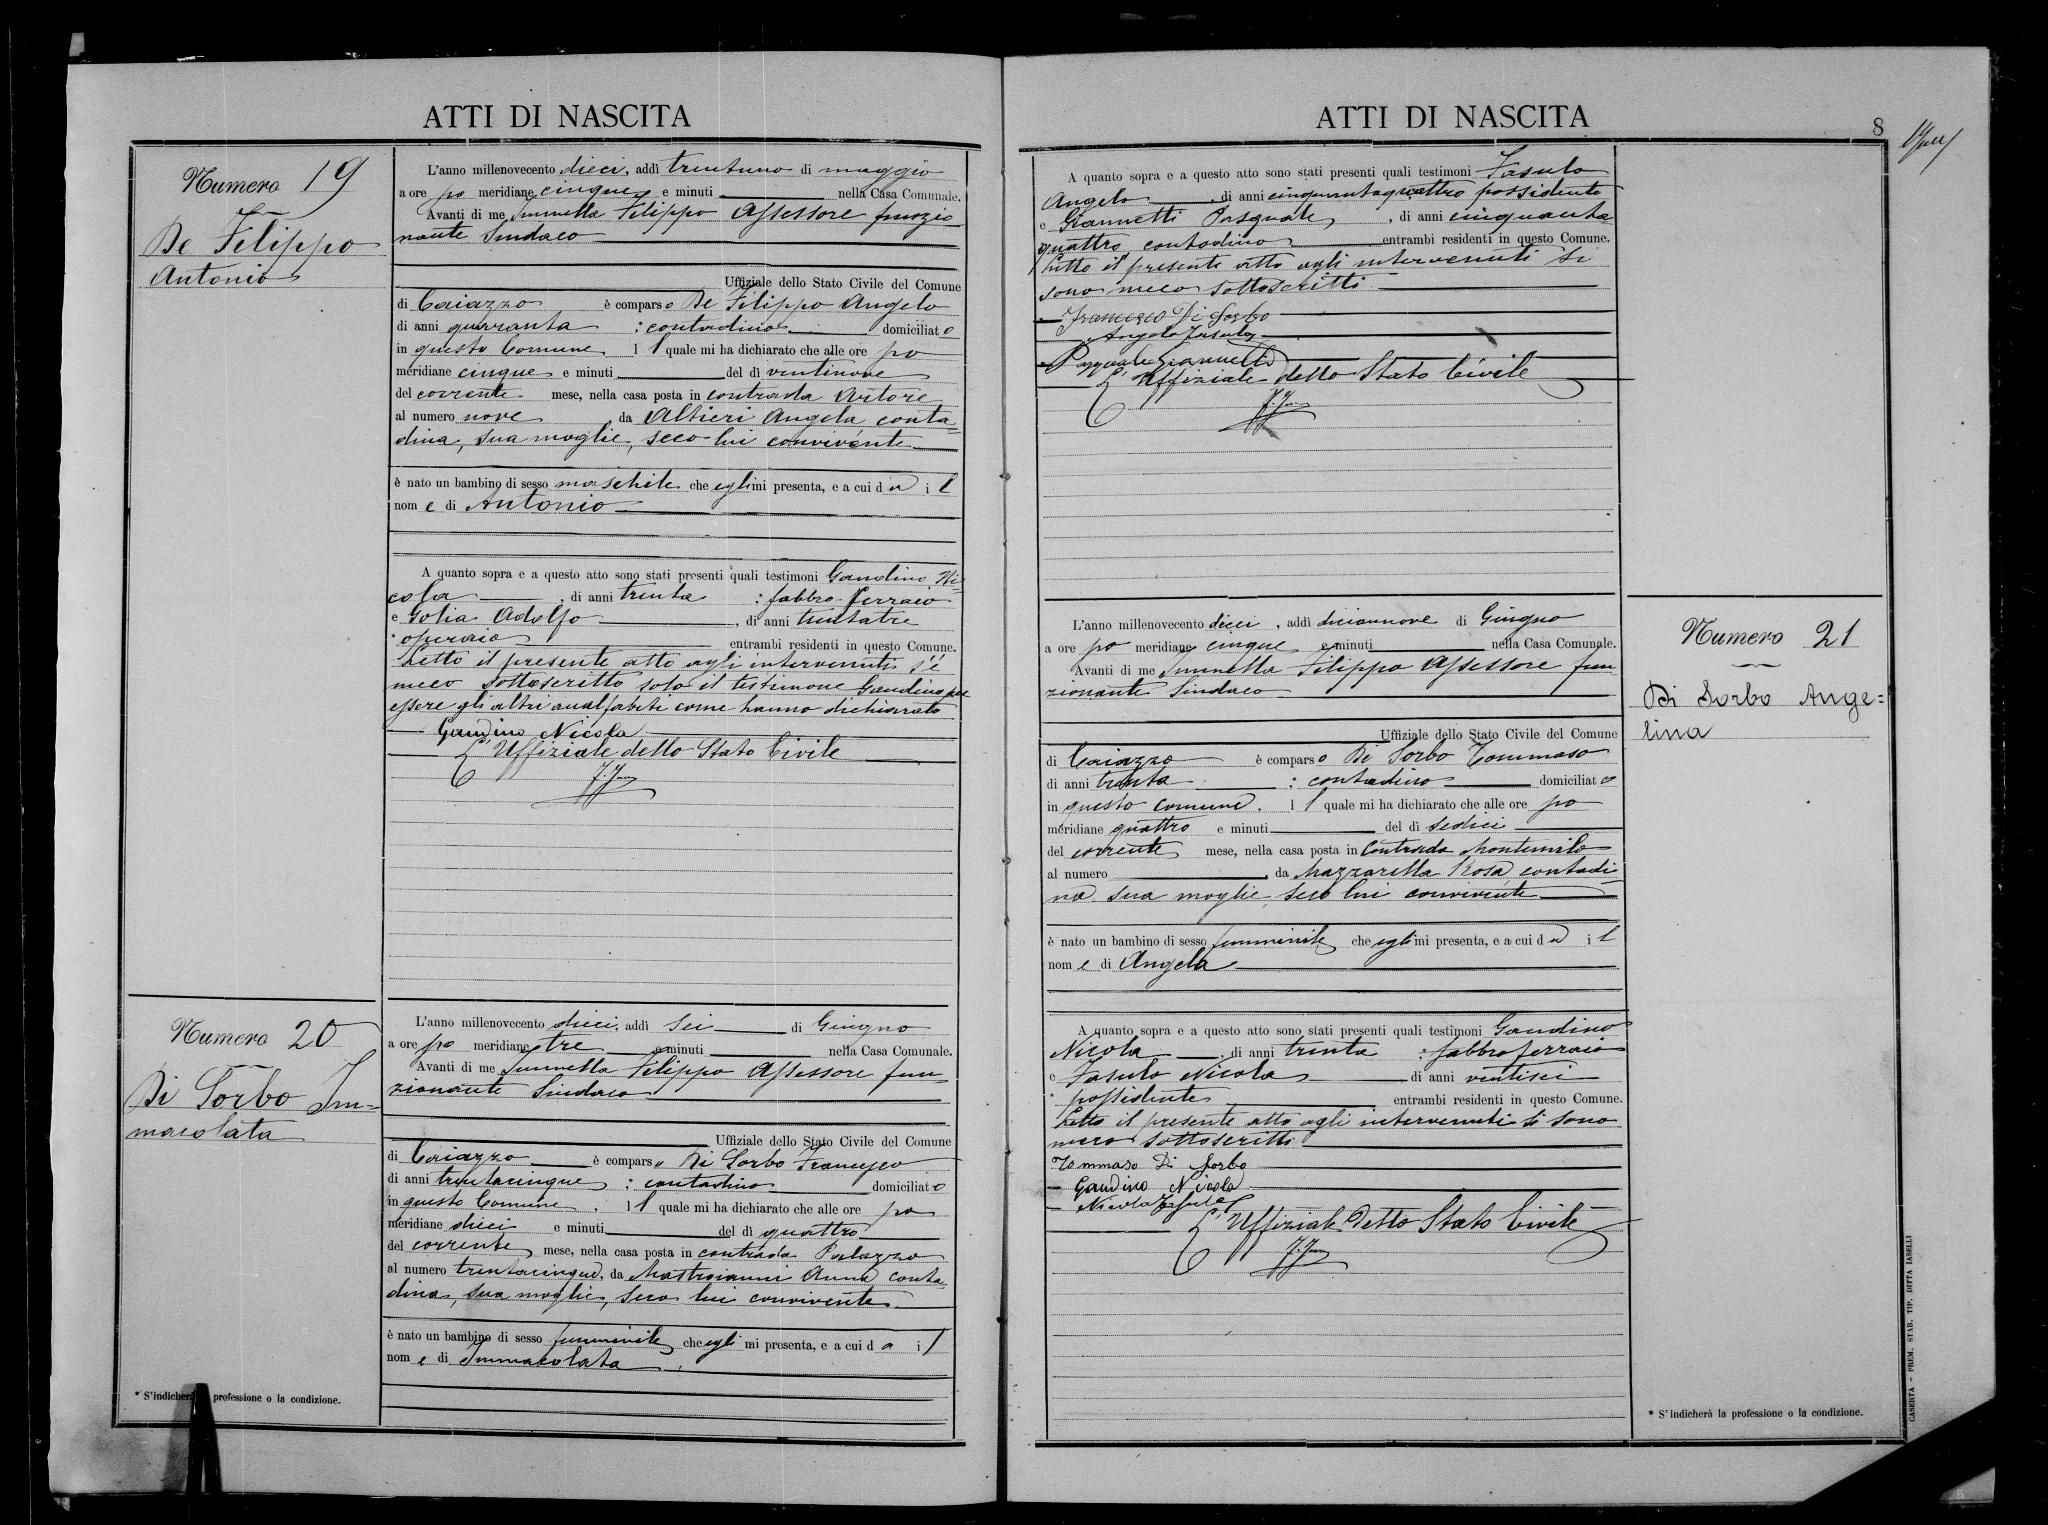 ATTI DI NASCITA
Numero 19
De Filippo
Antonio
L'anno millenovecento dieci, addì trentuno di maggio
a ore po meridiane cinque e minuti nella Casa Comunale.
Avanti di me Immella Filippo Assessore funzio
nante Sindaco
Uffiziale dello Stato Civile del Comune
di Caiazzo è comparso De Filippo Angelo
di anni quaranta ; contadino domiciliato
in questo Comune, il quale mi ha dichiarato che alle ore po
meridiane cinque e minuti del dì ventinove
del corrente mese, nella casa posta in contrada
al numero nove da Altieri Angela conta=
dina, sua moglie, seco lui convivente
è nato un bambino di sesso maschile che egli mi presenta, e a cui dà il
nome di Antonio
A quanto sopra e a questo atto sono stati presenti quali testimoni Gaudino Ni=
cola, di anni trenta ; fabbro ferraio
e Golia Adolfo, di anni trentatre
operaio entrambi residenti in questo Comune.
Letto il presente atto agli intervenuti s'è
meco sottoscritto solo il testimone Gaudino per
essere gli altri analfabeti come hanno dichiarato
Gaudino Nicola
L'Uffiziale dello Stato Civile
Numero 20
Di Sorbo Im=
macolata
L'anno millenovecento dieci, addì sei di Giugno
a ore po meridiane tre e minuti nella Casa Comunale.
Avanti di me Immella Filippo Assessore fun
zionante Sindaco
Uffiziale dello Stato Civile del Comune
di Caiazzo è comparso Di Sorbo Francesco
di anni trentacinque ; contadino domiciliato
in questo Comune, il quale mi ha dichiarato che alle ore po
meridiane dieci e minuti del dì quattro
del corrente mese, nella casa posta in contrada Palazzo
al numero trentacinque, da Mastroianni Anna conta=
dina, sua moglie, seco lui convivente
è nato un bambino di sesso femminile che egli mi presenta, e a cui dà il
nome di Immacolata
* S'indicherà professione o la condizione.
ATTI DI NASCITA
8
A quanto sopra e a questo atto sono stati presenti quali testimoni Fasulo
Angelo, di anni cinquantaquattro possidente
e Giannetti Pasquale, di anni cinquanta
quattro contadino entrambi residenti in questo Comune.
Letto il presente atto agli intervenuti si
sono meco sottoscritti
Francesco Di Sorbo
Angelo Fasulo
Pasquale Giannetti
L'Uffiziale dello Stato Civile
Numero 21
Di Sorbo Ange=
lina
L'anno millenovecento dieci, addì diciannove di Giugno
a ore po meridiane cinque e minuti nella Casa Comunale.
Avanti di me Immella Filippo Assessore fun
zionante Sindaco
Uffiziale dello Stato Civile del Comune
di Caiazzo è comparso Di Sorbo Tommaso
di anni trenta ; contadino domiciliato
in questo comune, il quale mi ha dichiarato che alle ore po
meridiane quattro e minuti del dì sedici
del corrente mese, nella casa posta in contrada Montemilo
al numero, da Mazzarella Rosa, contadi
na sua moglie, seco lui convivente
è nato un bambino di sesso femminile che egli mi presenta, e a cui dà il
nome di Angela
A quanto sopra e a questo atto sono stati presenti quali testimoni Gaudino
Nicola, di anni trenta ; fabbro ferraio
e Fasulo Nicola di anni ventisei
possidente entrambi residenti in questo Comune.
Letto il presente atto agli intervenuti si sono
meco sottoscritti
Tommaso Di Sorbo
Gaudino Nicola
Nicola Fasulo
L'Uffiziale dello Stato Civile
* S'indicherà la professione o la condizione.
CASERTA - PREM. STAB. TIP. DITTA IASELLI